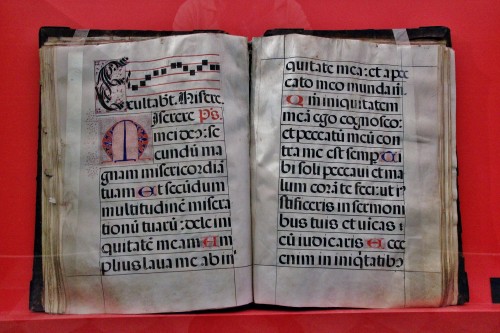 Exultabūt. Misere.
Miserere Ps.
mei deꝰ: se
cundū ma
gnam misericordiā
tuam Et secūdum
multitudinē misera
tionū tuarū: dele ini
quitatē meam Am
plius laua me ab ini
quitate mea: et a pec
cato meo munda m̄
Qm̄ iniquitatem
meā ego cognosco:
et peccatū meū con
tra me est semp̄
bi soli peccaui et ma
lum corā te feci: ut i
stificeris in sermoni
bus tuis et uīcas
cū iudicaris Ecce
enim in iniqtatibꝰ